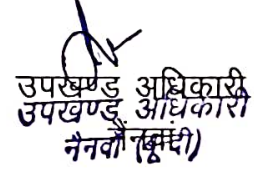 उपखण्ड अधिकारी
उपखण्ड अधिकारी
नैनवां
नैनवां (बून्दी)